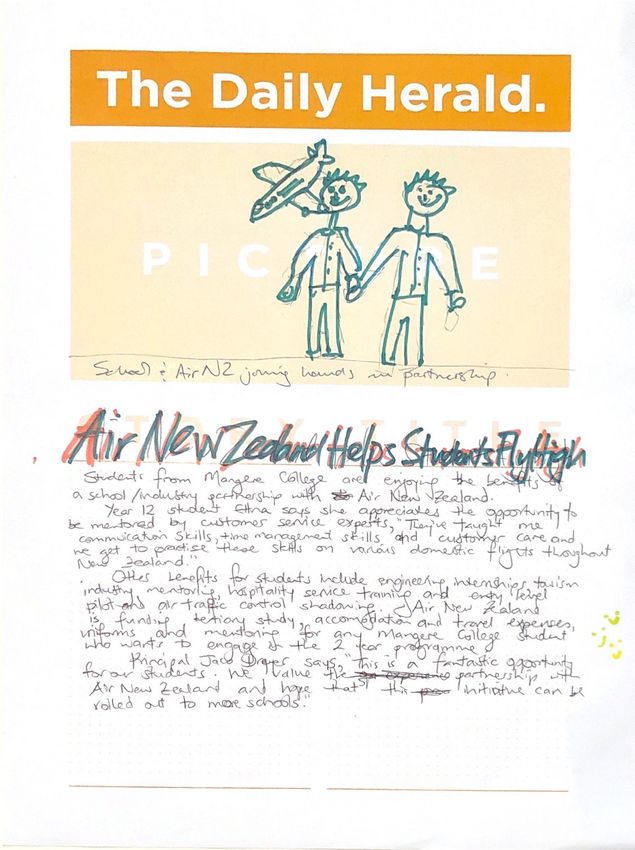 The Daily Herald.
PICTURE
School & Air NZ joining hands in partnership.
Air New Zealand Helps Students Fly High
Students from Mangere College are enjoying the benefits of
a school/industry partnership with Air New Zealand.
Year 12 student Etna says she appreciates the opportunity to
be mentored by customer service experts, "They've taught me
commuication skills, time management skills and customer care and
we get to practise these skills on various domestic flights thoughout
New Zealand."
Other benefits for students include engineering internships, tourism
industry mentoring, hospitality service training and entry level
pilot and air traffic control shadowing. Air New Zealand
is funding tertiary study, accomodation and travel expenses,
uniforms and mentoring for any Mangere College student
who wants to engage in the 2 year programme.
Principal Jace Draper says, "This is a fantastic opportunity
for our students. We value the partnership with
Air New Zealand and hope that this initiative can be
rolled out to more schools."